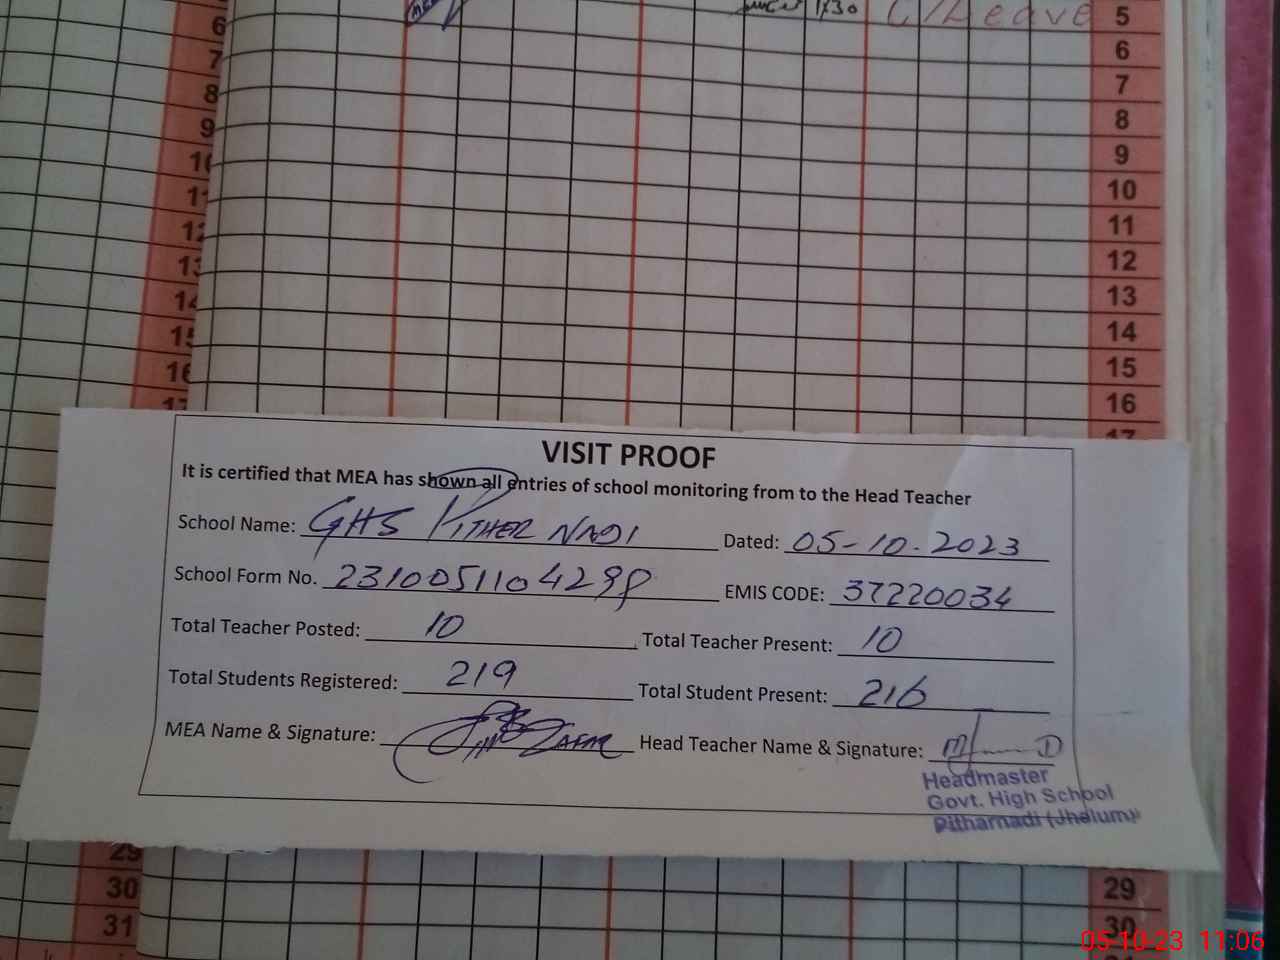 6 1730 C/Leave 5
7 6
8 7
9 8
10 9
11 10
12 11
13 12
14 13
15 14
16 15
17 16
17
VISIT PROOF
It is certified that MEA has shown all entries of school monitoring from to the Head Teacher
School Name: GHS PITHER NADI Dated: 05-10-2023
School Form No. EMIS CODE: 37220034
Total Teacher Posted: 10 Total Teacher Present: 10
Total Students Registered: 219 Total Student Present: 216
MEA Name & Signature: Zafar Head Teacher Name & Signature:
Headmaster
Govt. High School
Pitharnadi (Jhelum)
29 29
30 30
31 31
05-10-23 11:06